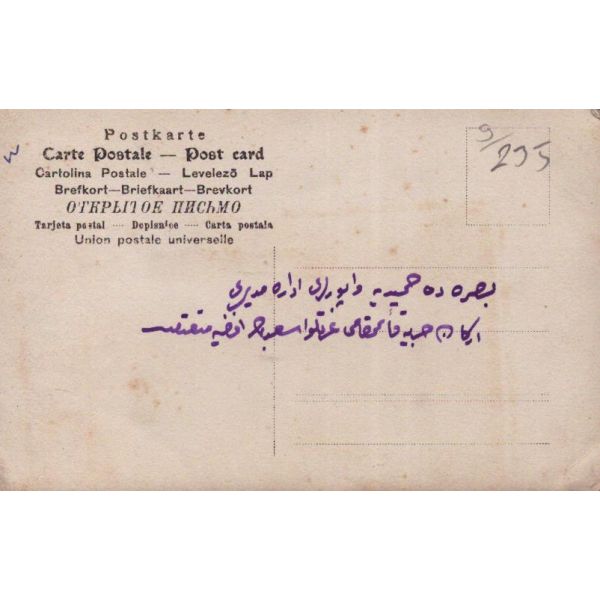 Postkarte
Carte Postale — Post card
Cartolina Postale — Levelező Lap
Brefkort—Briefkaart—Brevkort
ОТКРЫТОЕ ПИСЬМО
Tarjeta postal ···· Dopisnice ···· Carta postala
Union postale universelle
9/235
بصره ده حميديه واپورلرى اداره مديرى
اركان حربيه قائمقامى عزتلو اسعد بك افندى